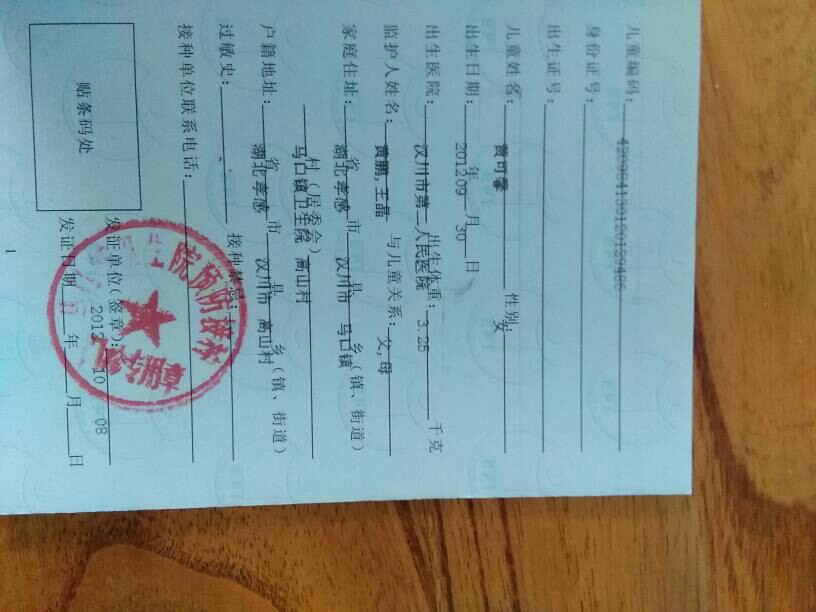 儿童编码：420984130120129486
身份证号：
出生证号：
儿童姓名：黄可馨 性别：女
出生日期：2012年09月30日
出生医院：汉川市第二人民医院 出生体重：3.25千克
监护人姓名：黄鹏,王晶 与儿童关系：父,母
家庭住址：湖北省孝感市汉川市县马口镇乡(镇、街道)
马口镇卫生院 高山村村(居委会)
户籍地址：湖北省孝感市汉川市县高山村乡(镇、街道)
过敏史： 接种禁忌：
接种单位联系电话：
贴条码处
发证单位(签章)：
发证日期：2012年10月08日
1